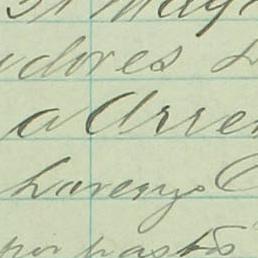 31 May
dores
a Arre
Lorenzo
por pasto